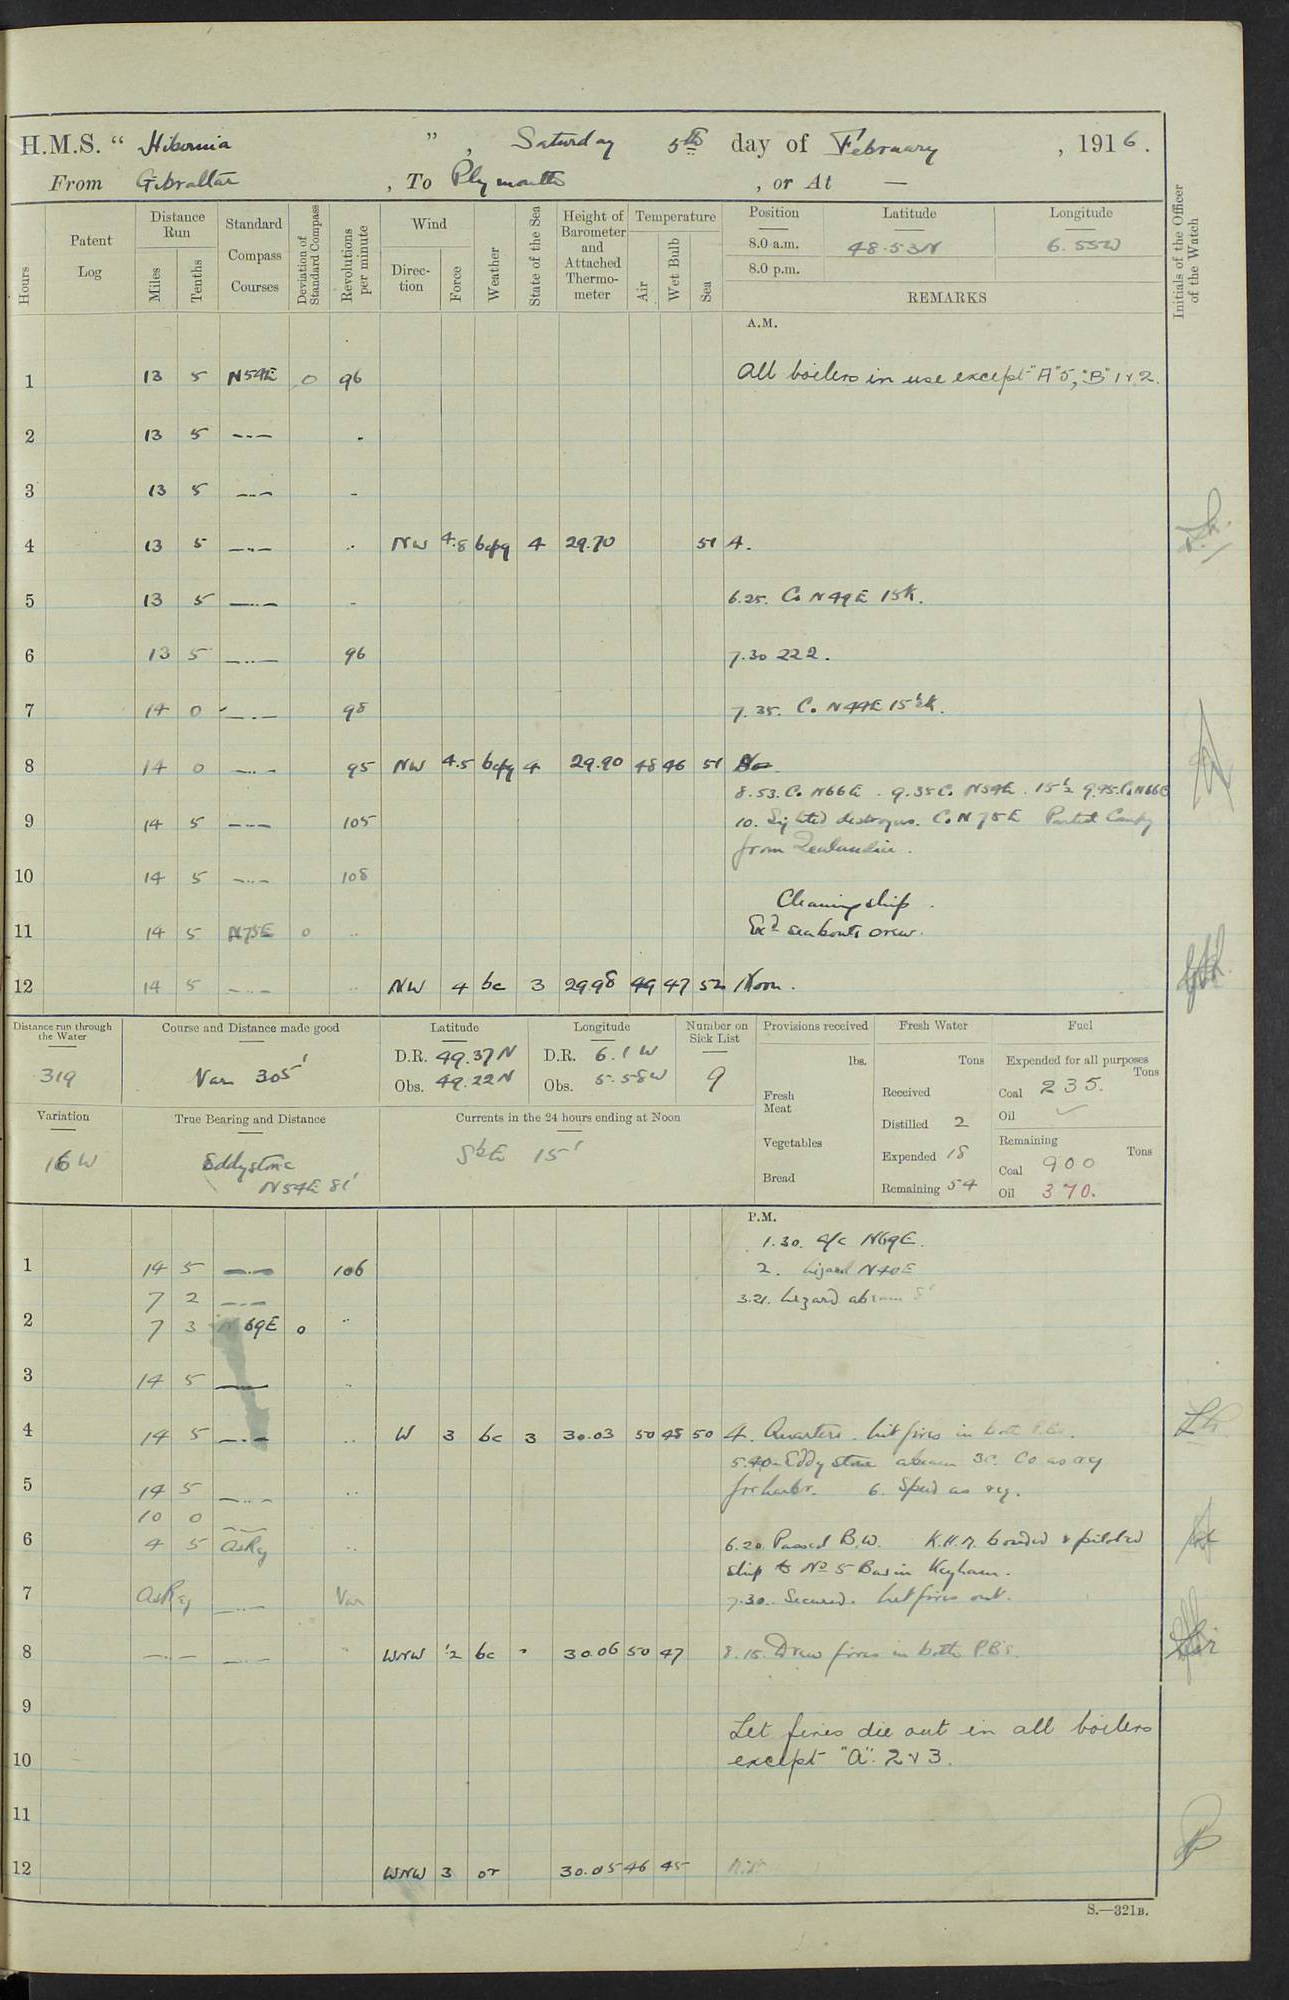 H.M.S. " Hibernia ", Saturday 5th day of February, 1916.
From Gibraltar, To Plymouth, or At —
Hours
Patent Log
Distance Run
Miles
Tenths
Standard Compass Courses
Deviation of Standard Compass
Revolutions per minute
Wind
Direction
Force
Weather
State of the Sea
Height of Barometer and Attached Thermometer
Temperature
Air
Wet Bulb
Sea
Position Latitude Longitude
8.0 a.m. 48.53N 6.55W
8.0 p.m.
REMARKS
Initials of the Officer of the Watch
A.M.
1 13 5 N54E 0 96 All boilers in use except "A" 5, "B" 1 & 2.
2 13 5 —..— .
3 13 5 —..— -
4 13 5 —..— .. NW 4.5 29.70 51 4.
5 13 5 —..— - 6.25. Co N49E 15K.
6 13 5 —..— 96 7.30 222.
7 14 0 —..— 98 7.35. Co N44E 15½K.
8 14 0 —..— 95 NW 4.5 4 29.90 48 46 51
8.53. Co N66E. 9.35 Co N54E. 15½ 9.45. Co N66E
9 14 5 —..— 105 10. Sighted destroyers. Co N75E Parted Company
from Zealandia.
10 14 5 —..— 108
Cleaning ship.
11 14 5 N75E 0 .. Exd seaboats crew.
12 14 5 —..— .. NW 4 bc 3 29.98 49 47 52 Noon.
Distance run through the Water
319
Course and Distance made good
Var 305'
Latitude
D.R. 49.37N
Obs. 49.22N
Longitude
D.R. 6.1W
Obs. 5.58W
Number on Sick List
9
Provisions received
lbs.
Fresh Meat
Vegetables
Bread
Fresh Water
Tons
Received
Distilled 2
Expended 18
Remaining 54
Fuel
Expended for all purposes
Tons
Coal 235.
Oil
Remaining
Tons
Coal 900
Oil 370.
Variation
16 W
True Bearing and Distance
Eddystone
N54E 81'
Currents in the 24 hours ending at Noon
15'
P.M.
1.30. a/c N69E.
1 14 5 —..— 106 2. Lizard N40E
7 2 —..— 3.21. Lizard abeam 8'
2 7 3 N69E 0 ..
3 14 5 —..— ..
4 14 5 —..— .. W 3 bc 3 30.03 50 48 50 4. Quarters. Lit fires in both P.Bs.
5.40 Eddystone abeam 3c. Co as req
5 14 5 —..— .. for harbr. 6. Speed as req.
10 0 —..—
6 4 5 as Req .. 6.20. Passed B.W. K.H.M. boarded & piloted
ship to No 5 Basin Keyham.
7 as Req —..— Var 7.30. Secured. Let fires out.
8 —..— —..— " WNW ½ bc " 30.06 50 47 8.15. Drew fires in both P.B's.
9
Let fires die out in all boilers
10 except "A". 2 & 3.
11
12 WNW 3 or 30.05 46 45
S.—321B.